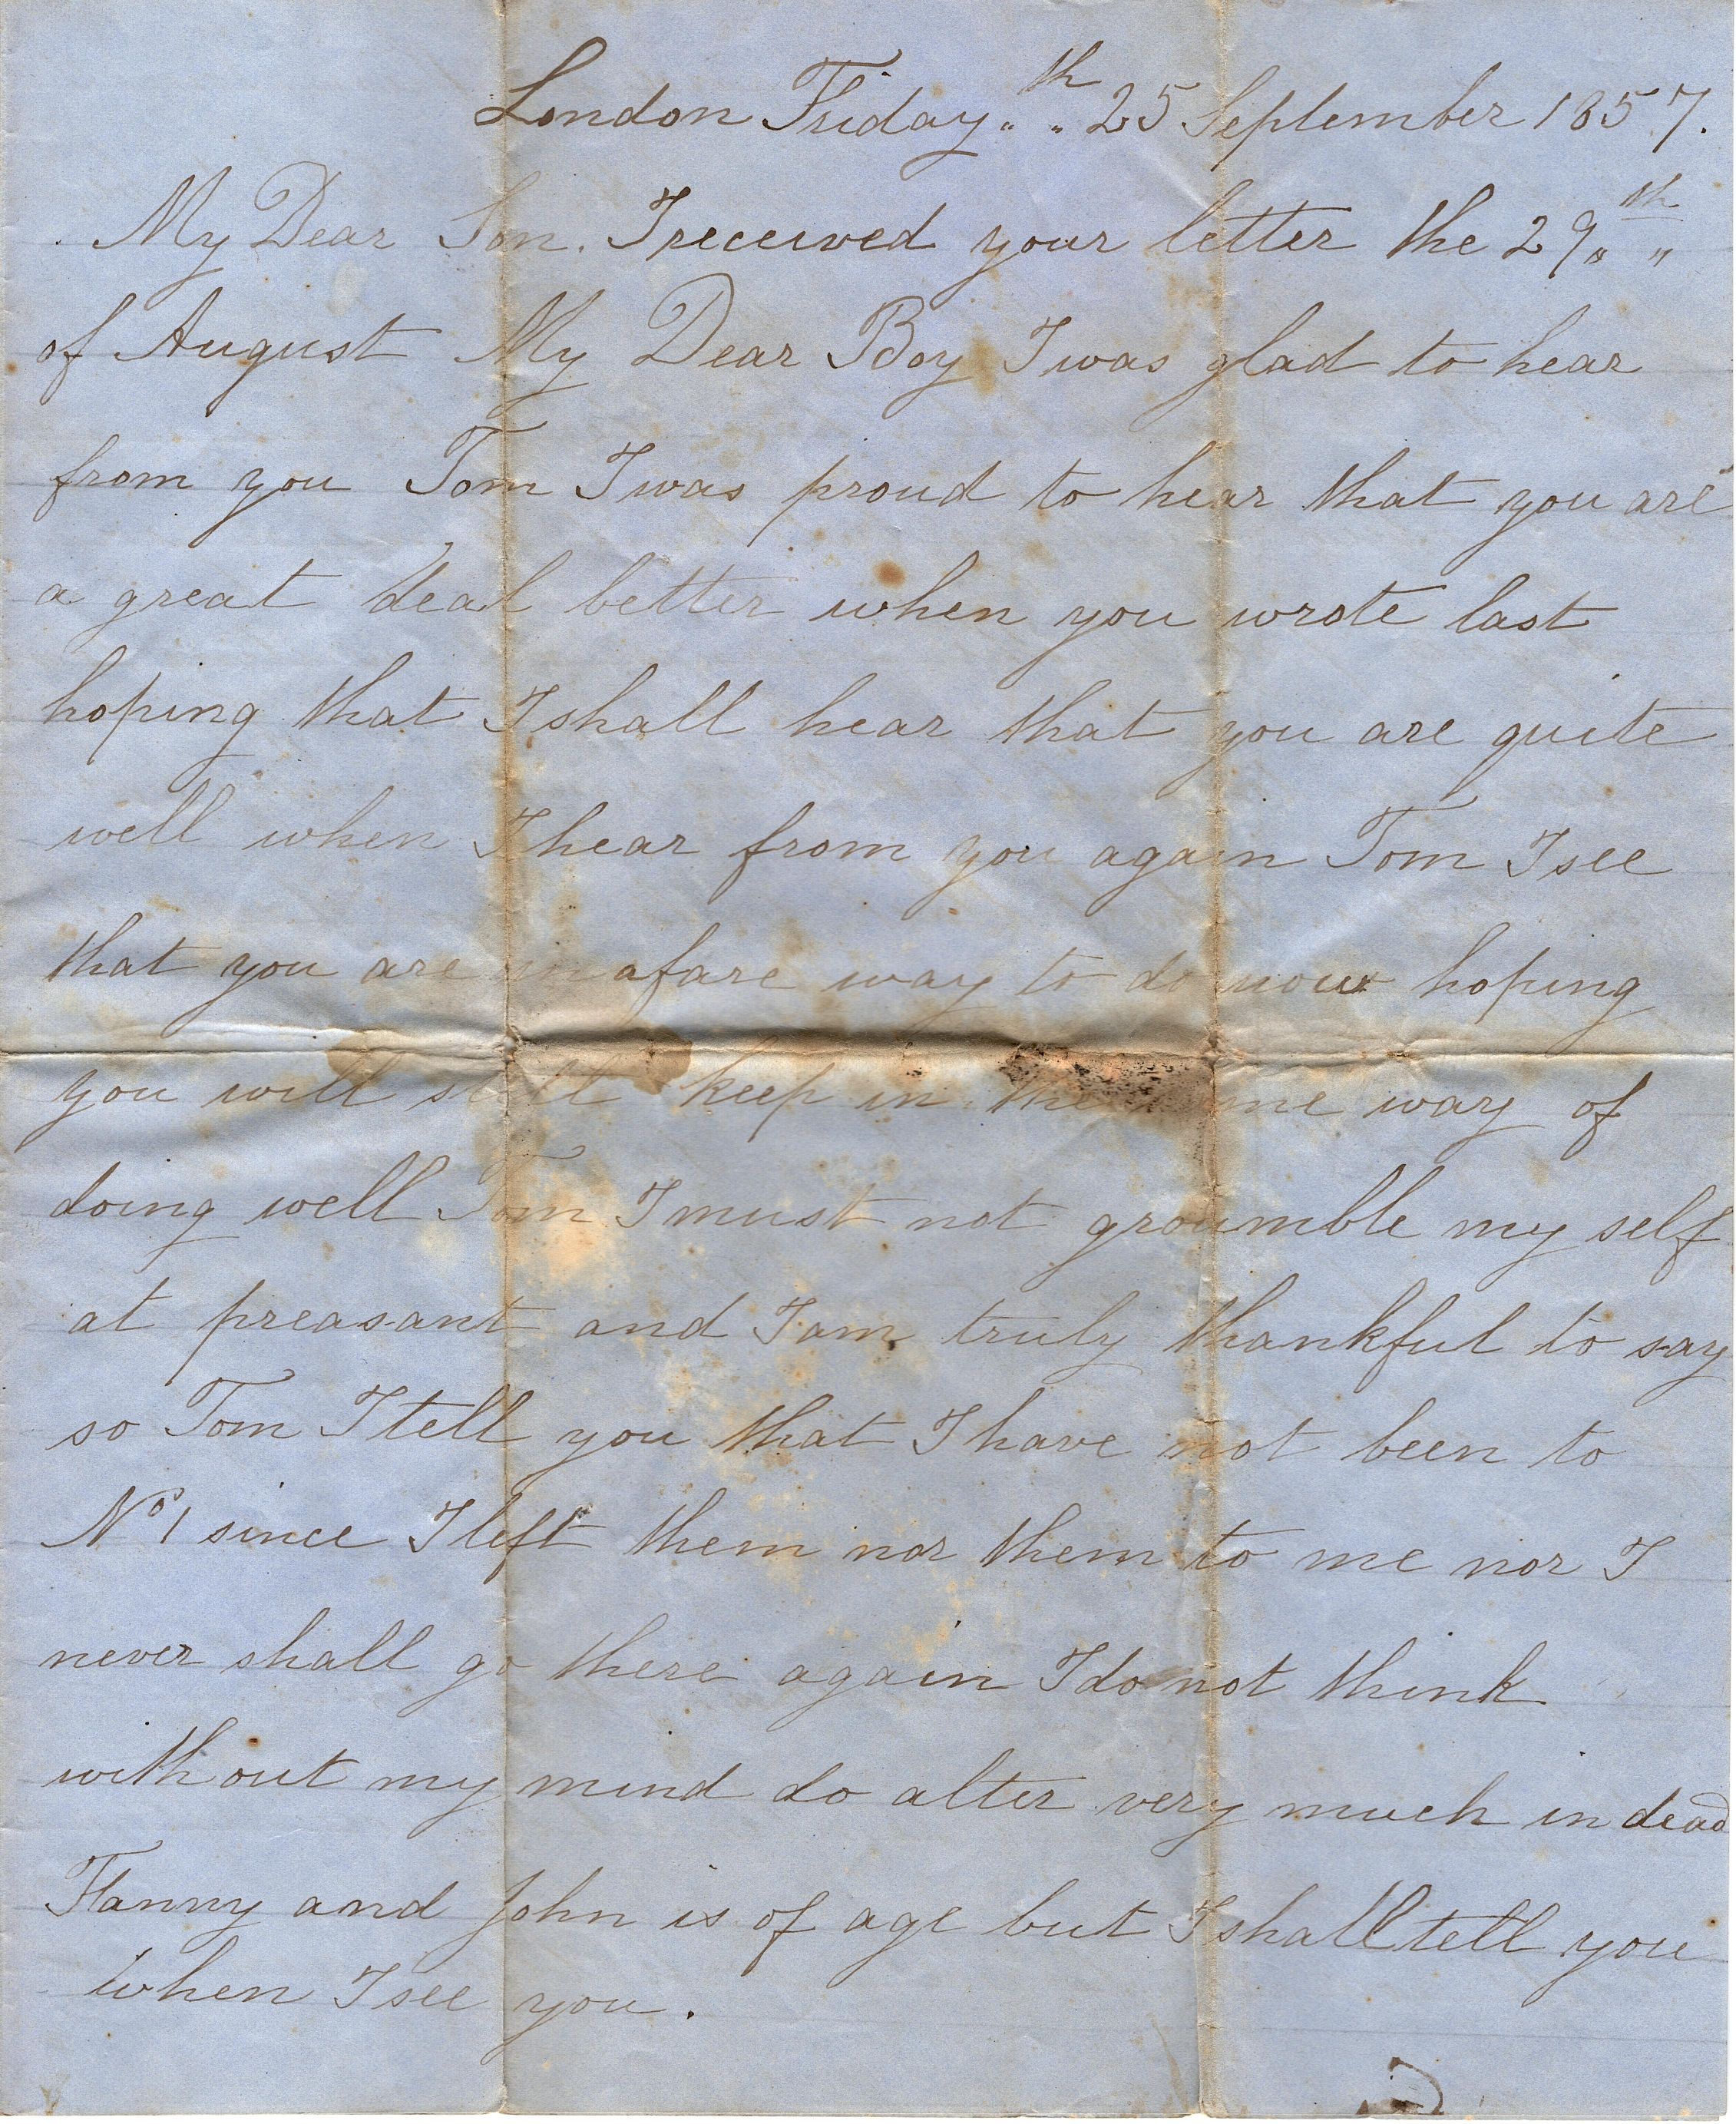 London Friday „ „ 25th September 1857.
My Dear Son. I received your letter the 29th „ „
of August My Dear Boy I was glad to hear
from you Tom I was proud to hear that you are
a great deal better when you wrote last
hoping that I shall hear that you are quite
well when I hear from you again Tom I see
that you are afare way to do now hoping
you will still keep in the way of
doing well Tom I must not groumble my self
at preasant and I am truly thankful to say
so Tom I tell you that I have not been to
No 1 since I left them nor them to me nor I
never shall go there again I do not think
without my mind do alter very much in dead
Fanny and John is of age but I shall tell you
when I see you.